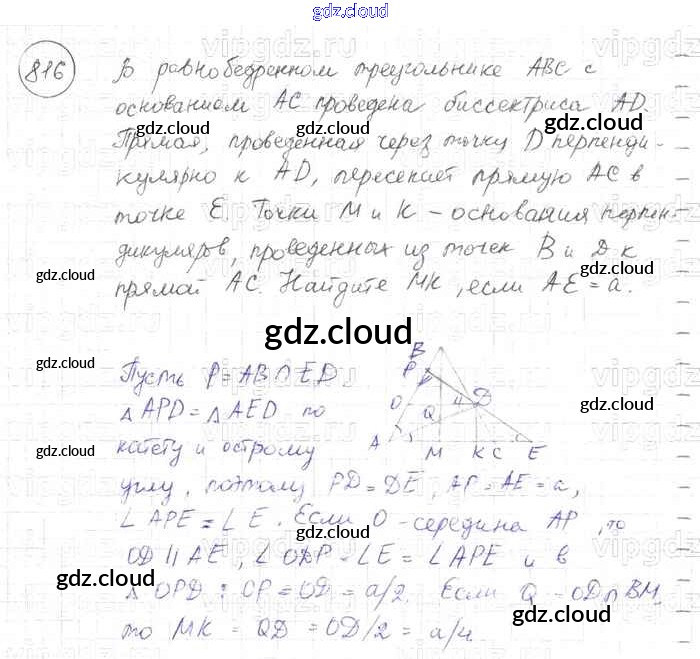 gdz.cloud
816
В равнобедренном треугольнике ABC с
основанием AC проведена биссектриса AD.
Прямая, проведенная через точку D перпенди-
кулярно к AD, пересекает прямую AC в
точке E. Точки M и K - основания перпен-
дикуляров, проведенных из точек B и D к
прямой AC. Найдите MK, если AE = a.
Пусть P = AB ∩ ED.
△ APD = △ AED по
катету и острому
углу, поэтому PD = DE, AP = AE = a,
∠ APE = ∠ E. Если O - середина AP, то
OD || AE, ∠ ODP = ∠E = ∠ APE и в
△ OPD : OP = OD = a/2. Если Q = OD ∩ BM,
то MK = QD = OD/2 = a/4.
B
P
O
Q
4
D
A
M
K C
E
gdz.cloud
gdz.cloud
gdz.cloud
gdz.cloud
gdz.cloud
gdz.cloud
gdz.cloud
gdz.cloud
gdz.cloud
gdz.cloud
gdz.cloud
gdz.cloud
gdz.cloud
gdz.cloud